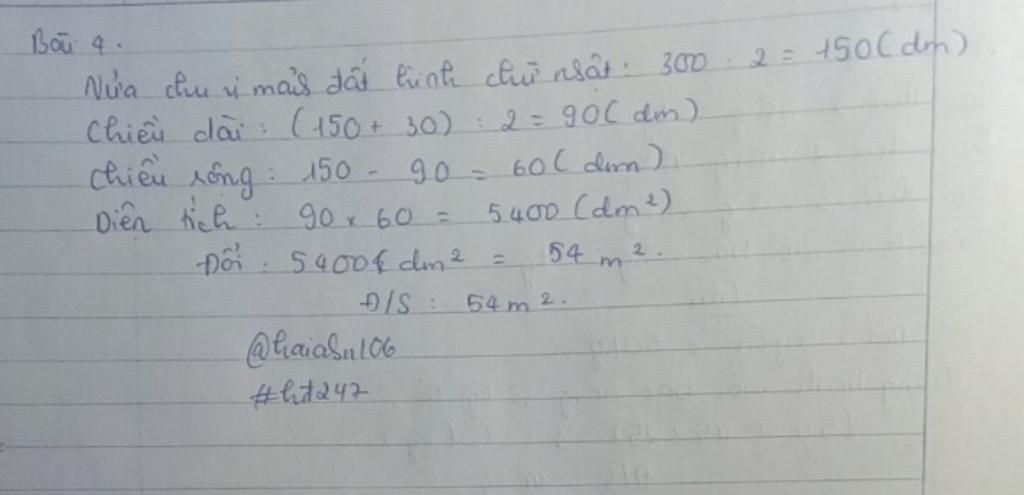 Bài 4.
Nửa chu vi mảnh đất hình chữ nhật: 300 : 2 = 150 (dm)
Chiều dài : (150 + 30) : 2 = 90 (dm)
Chiều rộng : 150 - 90 = 60 (dm)
Diện tích : 90 x 60 = 5400 (dm²)
Đổi : 5400 dm² = 54 m².
Đ/S : 54 m².
#hd247